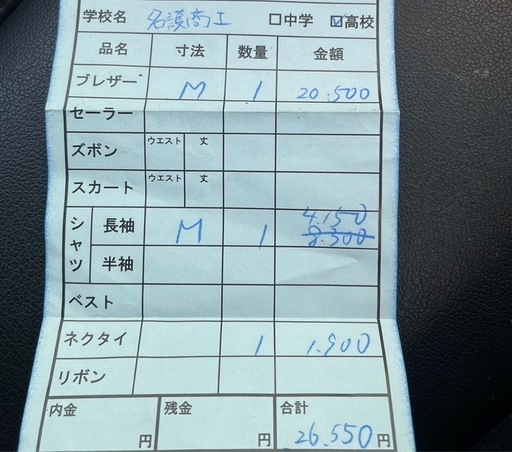 学校名 名護商工 □中学 ☑高校
品名 寸法 数量 金額
ブレザー M 1 20.500
セーラー
ズボン ウエスト 丈
スカート ウエスト 丈
シャツ 長袖 M 1 4.150 8.300
半袖
ベスト
ネクタイ 1 1.900
リボン
内金 円 残金 円 合計 26.550円